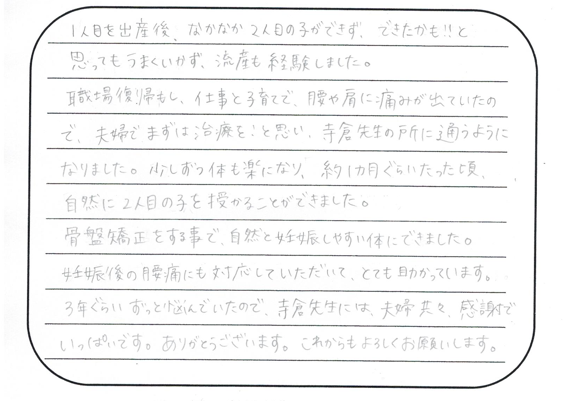 1人目を出産後、なかなか2人目の子ができず、できたかも!!と
思ってもうまくいかず、流産も経験しました。
職場復帰もし、仕事と子育てで、腰や肩に痛みが出ていたの
で、夫婦でまずは治療を!と思い、寺倉先生の所に通うように
なりました。少しずつ体も楽になり、約1カ月ぐらいたった頃、
自然に2人目の子を授かることができました。
骨盤矯正をする事で、自然と妊娠しやすい体にできました。
妊娠後の腰痛にも対応していただいて、とても助かっています。
3年ぐらいずっと悩んでいたので、寺倉先生には、夫婦共々、感謝で
いっぱいです。ありがとうございます。これからもよろしくお願いします。